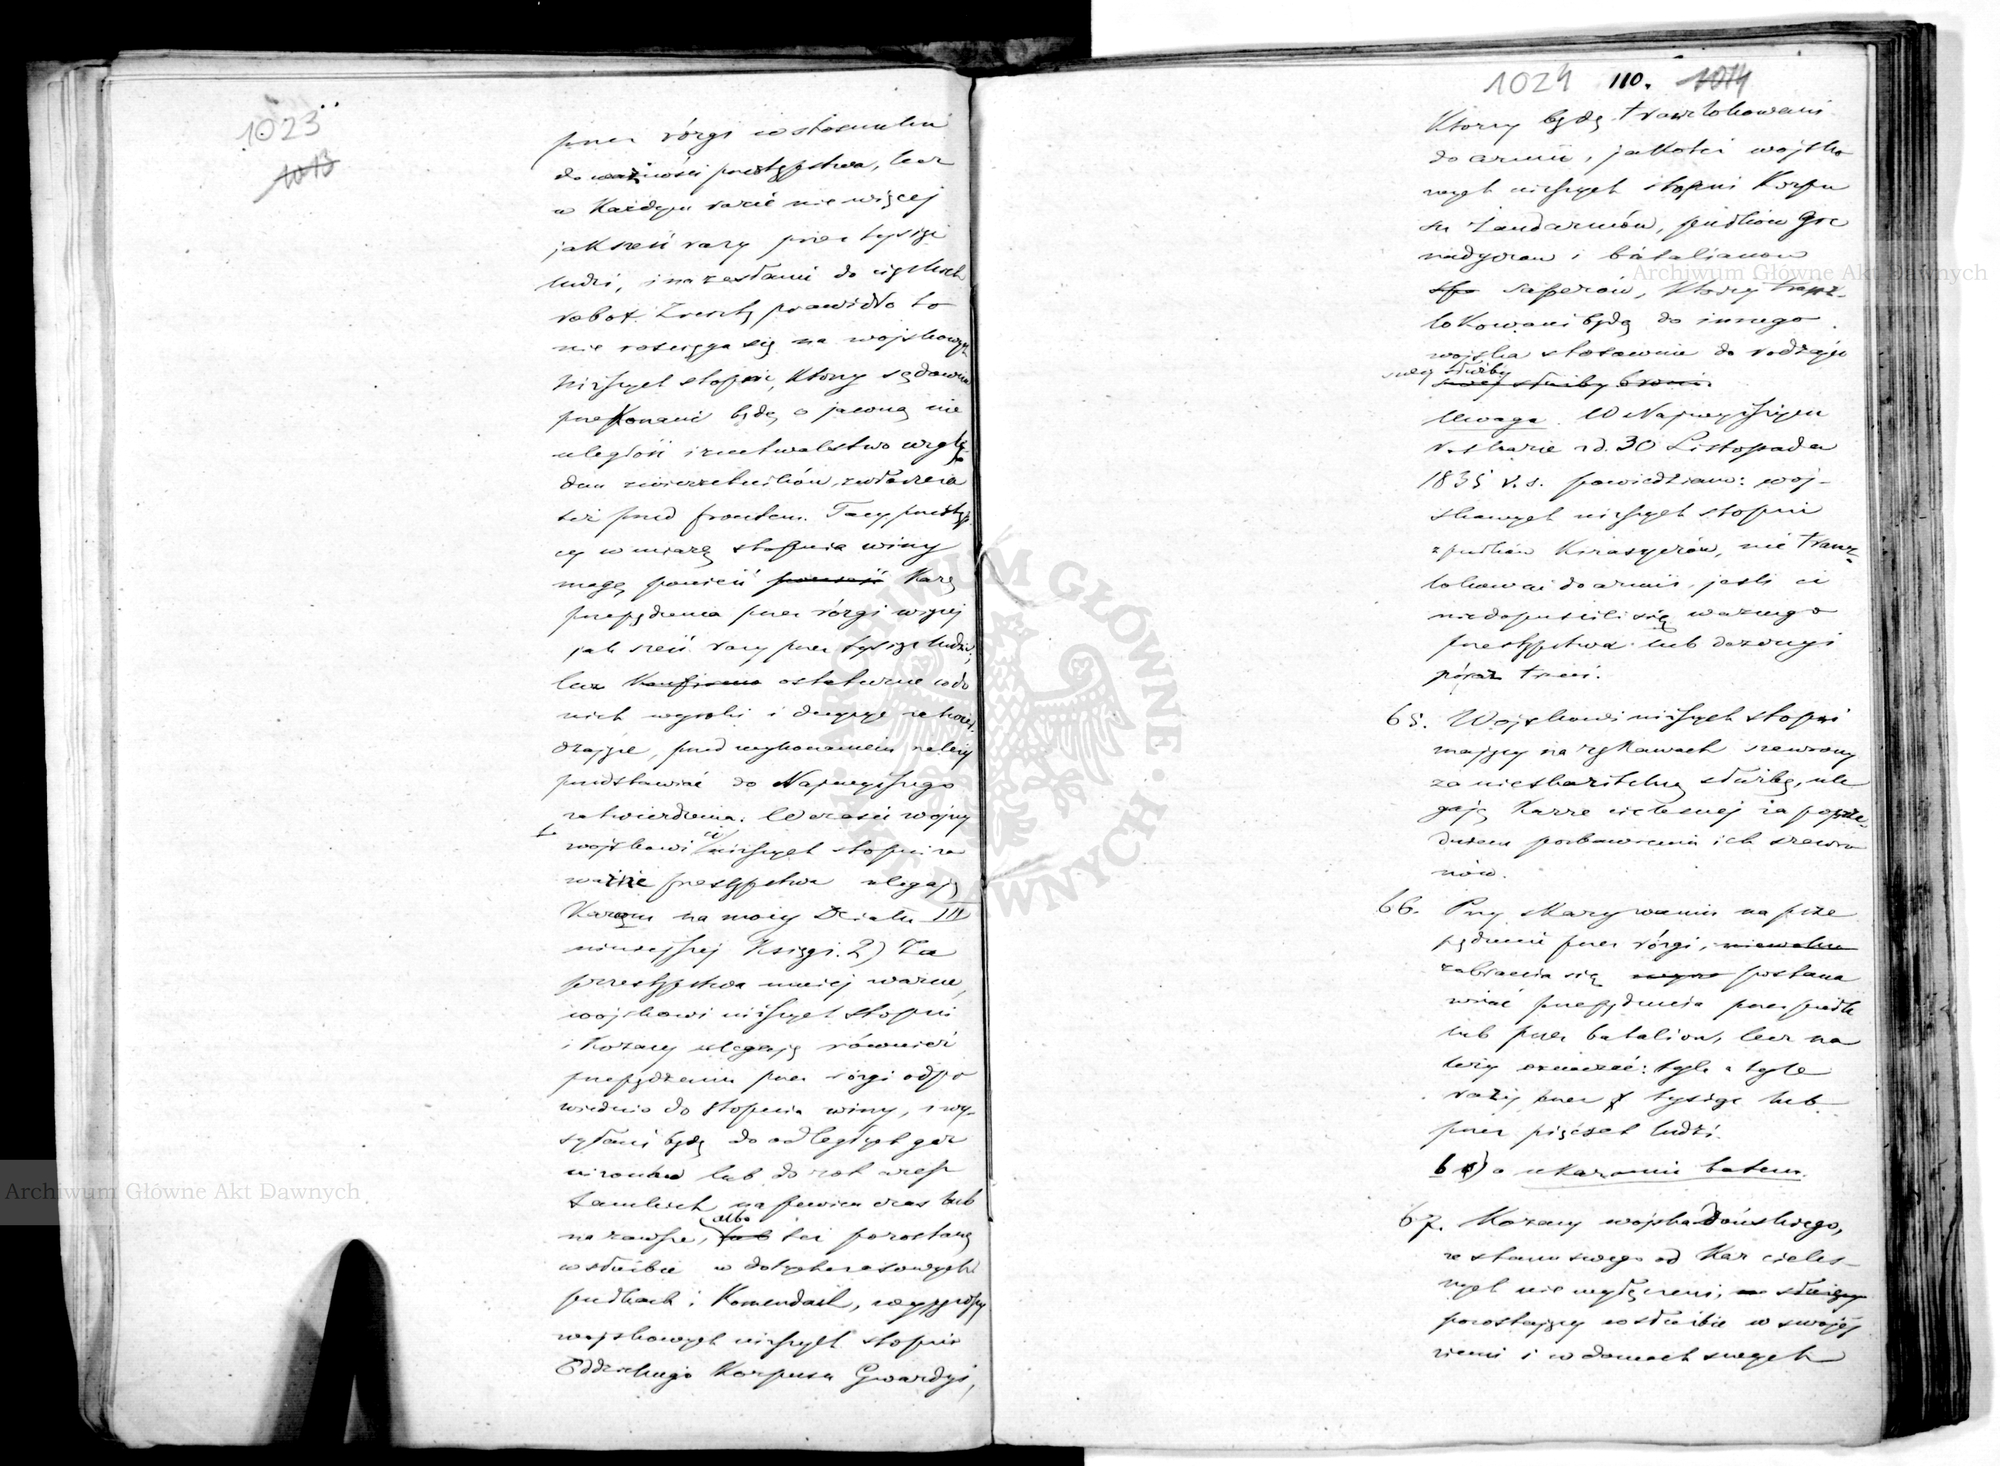 1023
1013
przez rózgi w stosunku
do ważności przestępstwa, lecz
w Każdym razie nie więcej
jak sześć razy przez tysiąc
ludzi, i na zesłanie do ciężkich
robot. Zresztą prawidło to
nie rosciąga się na wojskowych
niższych stopni, Którzy sądownie
przeKonani będą o jawną nie
uległość i zuchwalstwo wzglę-
dem zwierzchników, zwłaszcza
też przed frontem. Tacy przestęp
cy w miarę stopnia winy
mogą ponieść ponieść Karę
przepędzenia przez rózgi więcej
jak sześć razy przez tysiąc ludzi;
lecz ostateczne co do
nich wyroki i decyzye zatwier-
dzające, przed wykonaniem należy
przedstawiać do Najwyższego
zatwierdzenia. W czasie wojny
wojskowi niższych stopni za
ważne przestępstwa ulegają
Karom na mocy Działu III
niniejszej Księgi. 2) Za
przestępstwa mniej ważne,
wojskowi niższych stopni
i Kozacy ulegają również
przepędzeniu przez rózgi odpo
wiednio do stopnia winy, i wy-
syłani będą do odległych gar
nizonów lub do rot aresz
tanckich na pewien czas lub
na zawsze, albo lub też pozostaną
w służbie w dotychczasowych
pułkach i Komendach, wyjąwszy
wojskowych niższych stopni
Oddzielnego Korpusu Gwardyi,
1024 110. 1014
Którzy będą tranzlokowani
do armii, jakoteż wojsko
wych niższych stopni Korpu
su Żandarmów, pułków Gre
nadyerów i batalionów
Saperów, Którzy tranz-
lokowani będą do innego
wojska stosownie do rodzaju
swej służby
swej służby broni.
Uwaga. W Najwyższym
Ukazie z d. 30 Listopada
1835 r. s. powiedziano: woj-
skowych niższych stopni
z pułków Kirasyerów, nie tranz-
lokować do armii, jeśli ci
niedopuścili się ważnego
przestępstwa lub dezercyi
po raz trzeci.
65. Wojskowi niższych stopni
mający na rękawach szewrony
za nieskazitelną służbę, ule
gają Karze cielesnej za poprze-
dniem pozbawieniem ich szewro
nów.
66. Przy skazywaniu na prze
pędzenie przez rózgi,
zabrania się postana
wiać przepędzenia przez pułk
lub przez batalion, lecz na
leży oznaczać: tyle a tyle
razy przez tysiąc lub
przez pięćset ludzi.
b) o ukaraniu batem.
67. Kozacy wojska Dońskiego,
ze stanu swego od Kar cieles-
nych nie wyłączeni, służący
pozostający w służbie w swojéj
ziemi i w domach swych
Archiwum Główne Akt Dawnych
Archiwum Główne Akt Dawnych
ARCHIWUM GŁÓWNE AKT DAWNYCH